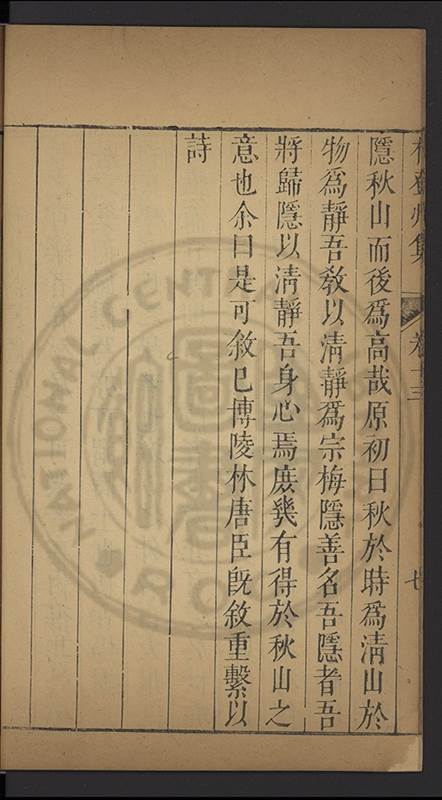 卷十三
七
隱秋山而後為高哉原初曰秋於時為清山於
物為靜吾教以清靜為宗梅隱善名吾隱者吾
將歸隱以清靜吾身心焉庶幾有得於秋山之
意也余曰是可敘已博陵林唐臣既敘重繫以
詩